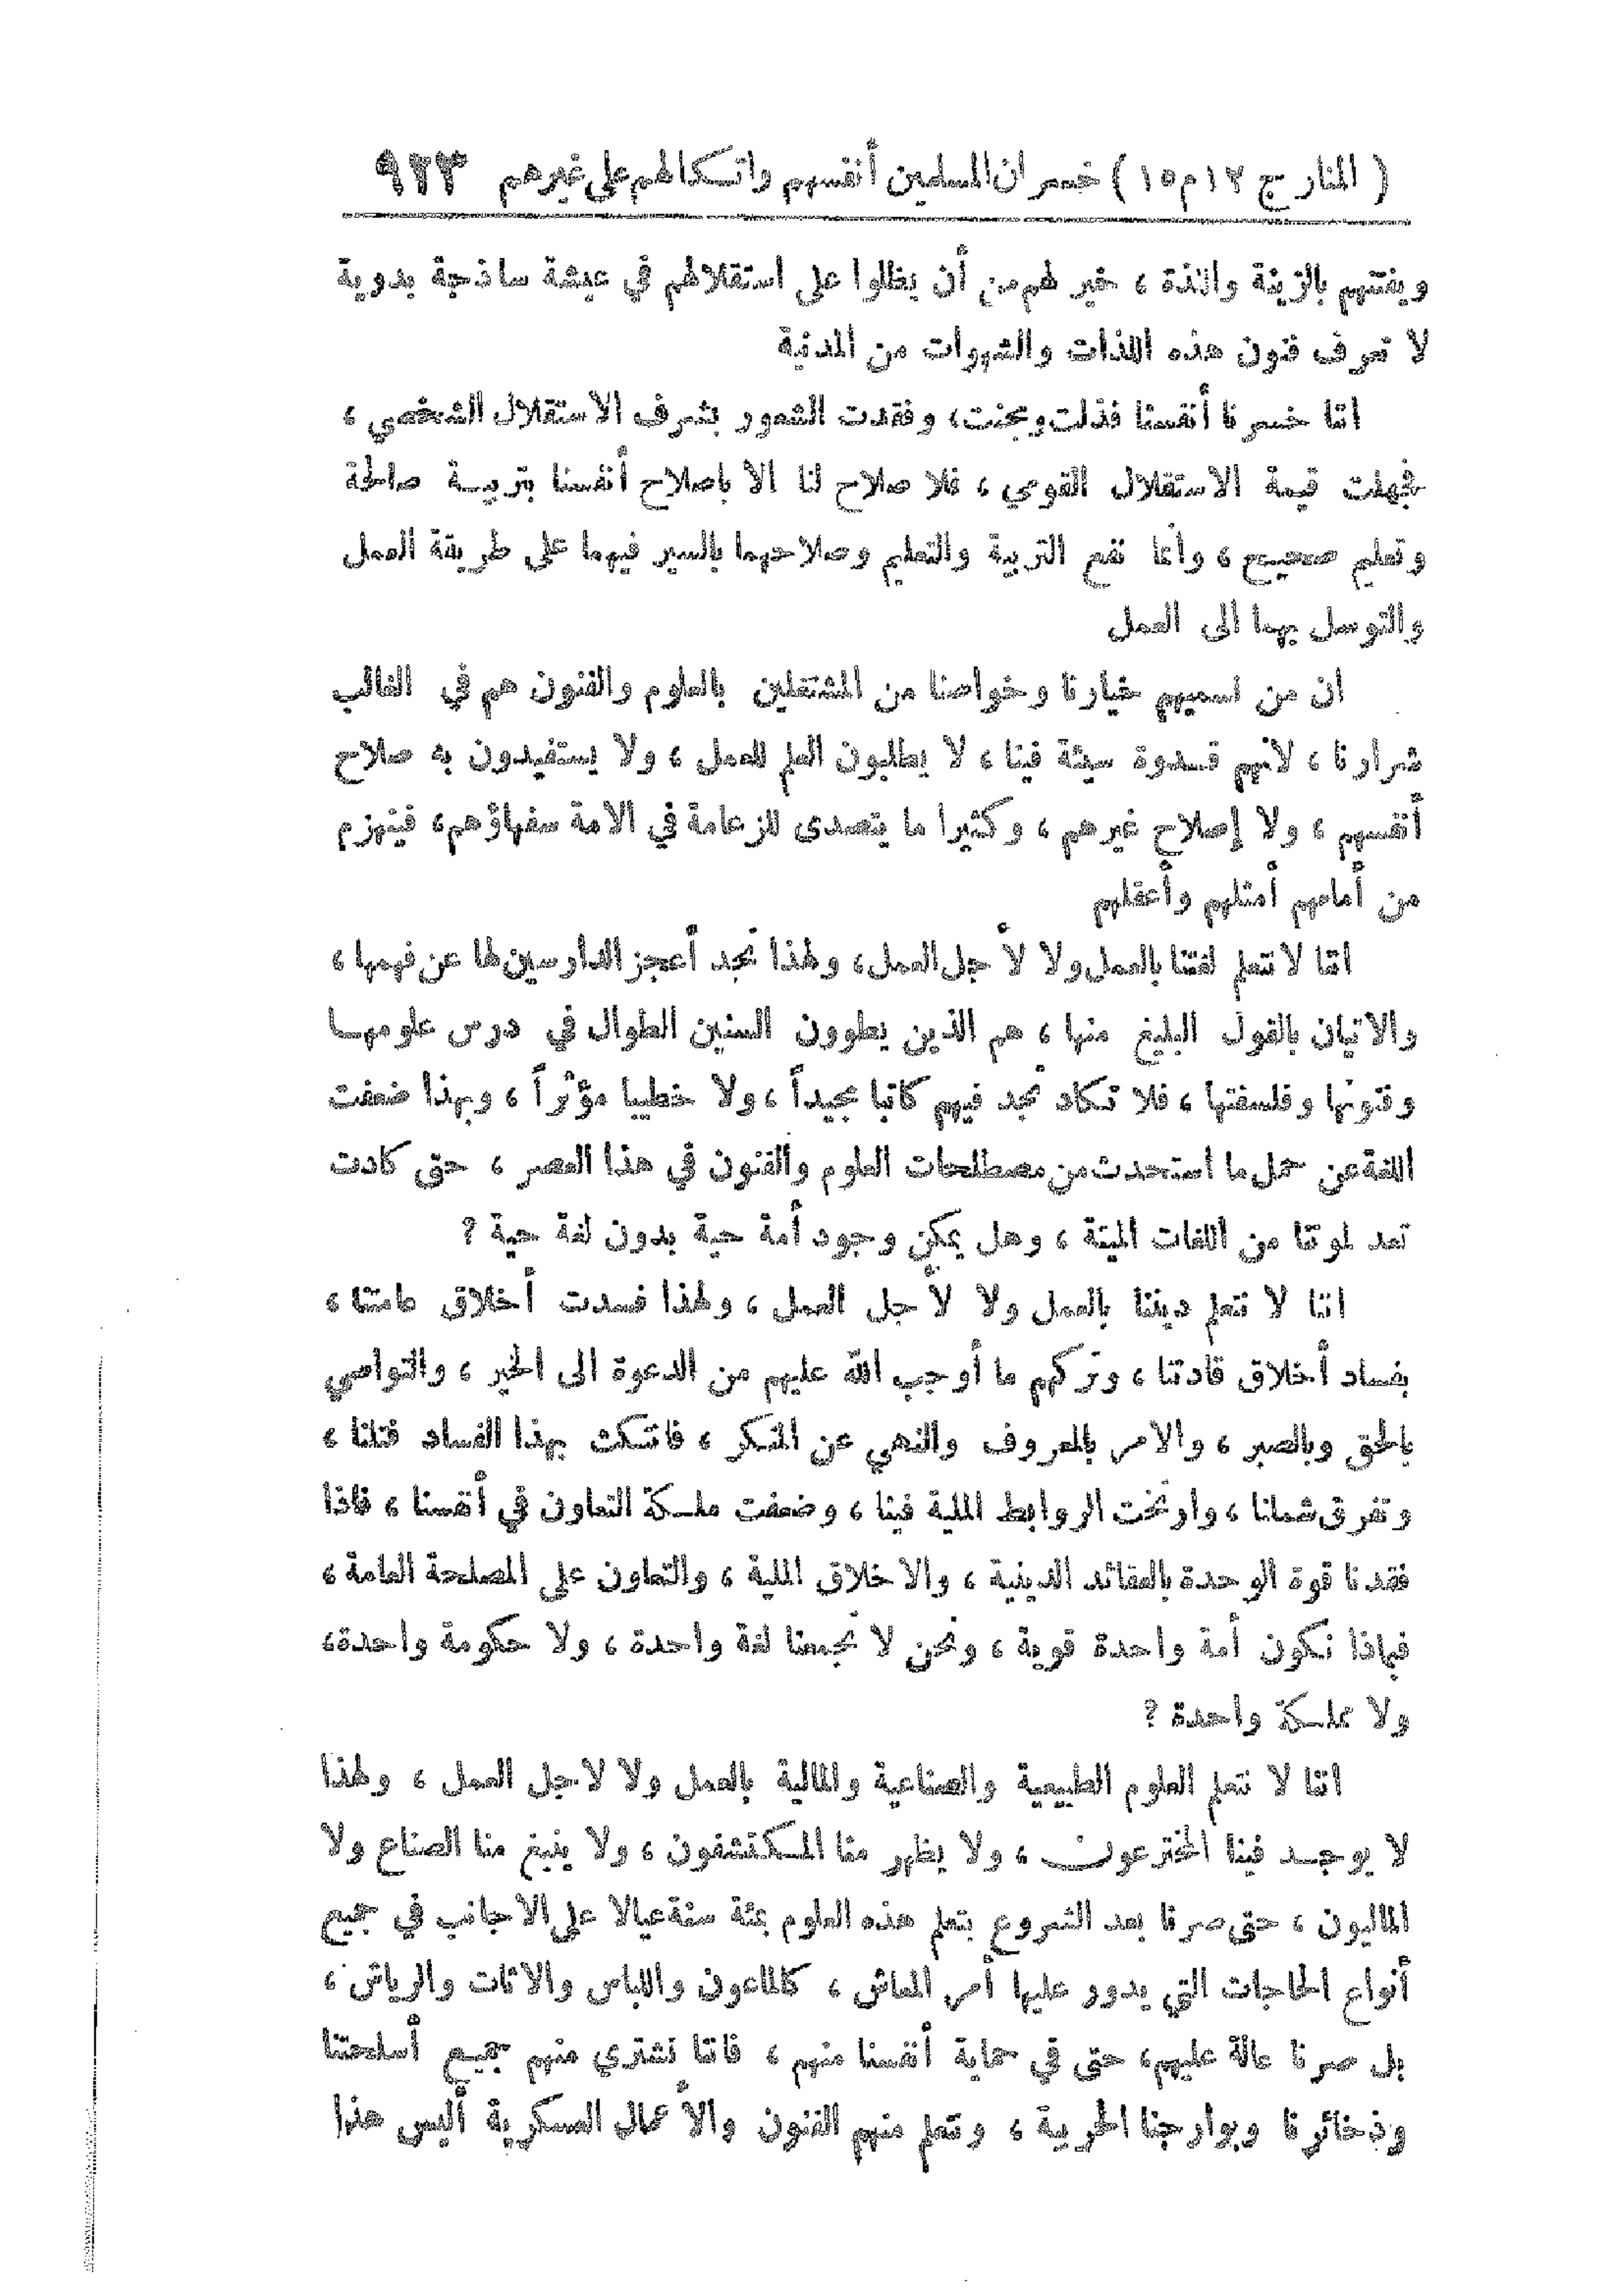 ( المنار ج ١٢ م ١٥ ) خسران المسلمين أنفسهم واتكالهم على غيرهم ٩٢٣
ويفتنهم بالزينة واللذة ، خير لهم من أن يظلوا على استقلالهم في عيشة ساذجة بدوية
لا تعرف فنون هذه اللذات والشهوات من المدنية
اننا خسرنا أنفسنا فذلت ومجنت، وفقدت الشعور بشرف الاستقلال الشخصي ،
فجهلت قيمة الاستقلال القومي ، فلا صلاح لنا الا باصلاح أنفسنا بتربية صالحة
وتعليم صحيح ، وانما نفع التربية والتعليم وصلاحهما بالسير فيهما على طريقة العمل
والتوسل بهما الى العمل
ان من نسميهم خيارنا وخواصنا من المشتغلين بالعلوم والفنون هم في الغالب
شرارنا ، لانهم قدوة سيئة فينا ، لا يطلبون العلم للعمل ، ولا يستفيدون به صلاح
أنفسهم ، ولا إصلاح غيرهم ، وكثيرا ما يتصدى للزعامة في الامة سفهاؤهم، فينهزم
من أمامهم أمثلهم وأعقلهم
اننا لا نتعلم لغتنا بالعمل ولا لأجل العمل، ولهذا نجد أعجز الدارسين لها عن فهمها ،
والاتيان بالقول البليغ منها ، هم الذين يطوون السنين الطوال في درس علومها
وفنونها وفلسفتها ، فلا تكاد تجد فيهم كاتبا مجيداً ، ولا خطيبا مؤثراً ، وبهذا ضعفت
اللغة عن حمل ما استحدث من مصطلحات العلوم والفنون في هذا العصر ، حتى كادت
تعد لموتنا من اللغات الميتة ، وهل يمكن وجود أمة حية بدون لغة حية ؟
اننا لا نتعلم ديننا بالعمل ولا لأجل العمل ، ولهذا فسدت أخلاق عامتنا ،
بفساد أخلاق قادتنا ، وتركهم ما أوجب الله عليهم من الدعوة الى الخير ، والتواصي
بالحق وبالصبر ، والامر بالمعروف والنهي عن المنكر ، فانتكث بهذا الفساد فتلنا ،
وتفرق شملنا ، وارتخت الروابط الملية فينا ، وضعفت ملكة التعاون في أنفسنا ، فاذا
فقدنا قوة الوحدة بالعقائد الدينية ، والاخلاق الملية ، والتعاون على المصلحة العامة ،
فبماذا نكون أمة واحدة قوية ، ونحن لا تجمعنا لغة واحدة ، ولا حكومة واحدة،
ولا مملكة واحدة ؟
اننا لا نتعلم العلوم الطبيعية والصناعية والمالية بالعمل ولا لاجل العمل ، ولهذا
لا يوجد فينا المخترعون ، ولا يظهر منا المكتشفون ، ولا ينبغ منا الصناع ولا
الماليون ، حتى صرنا بعد الشروع بتعلم هذه العلوم بمئة سنة عيالا على الاجانب في جميع
أنواع الحاجات التي يدور عليها أمر المعاش ، كالماعون واللباس والاثاث والرياش ،
بل صرنا عالة عليهم، حتى في حماية أنفسنا منهم ، فاننا نشتري منهم جميع أسلحتنا
وذخائرنا وبوارجنا الحربية ، ونتعلم منهم الفنون والأعمال العسكرية أليس هذا